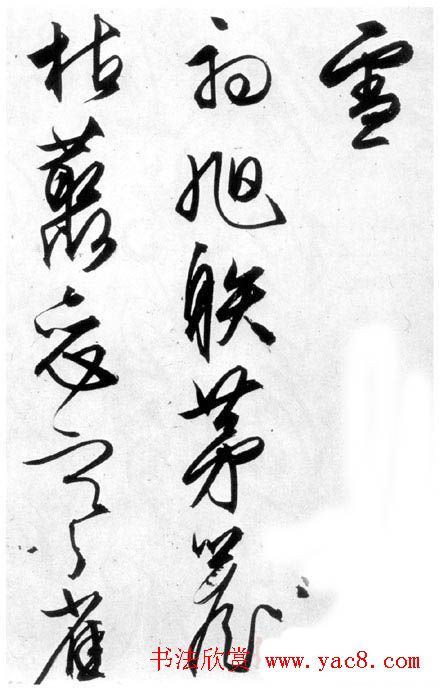 雪
初旭茅
枯叢寒雀
书法欣赏 www.yac8.com